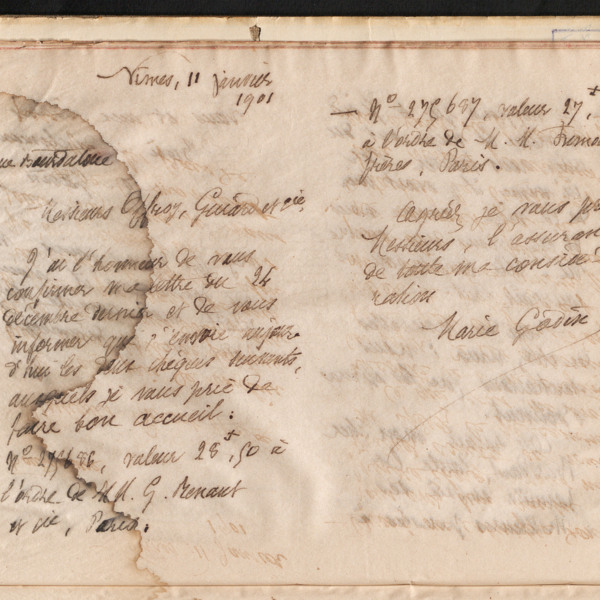 Nîmes, 11 janvier
1901
rue Bourdaloue
Messieurs Offroy, Guiard et Cie,
J'ai l'honneur de vous
confirmer ma lettre du 24
décembre dernier et de vous
informer que j'envoie aujour-
d'hui les deux chèques suivants,
auxquels je vous prie de
faire bon accueil :
N° 275686, valeur 28 f, 50 à
l'ordre de M.M. G. Renaut
et Cie, Paris.
— N° 275687, valeur 27, f
à l'ordre de M.M.
frères, Paris.
Agréez je vous pr
Messieurs, l'assuran
de toute ma considé
ration
Marie Godin